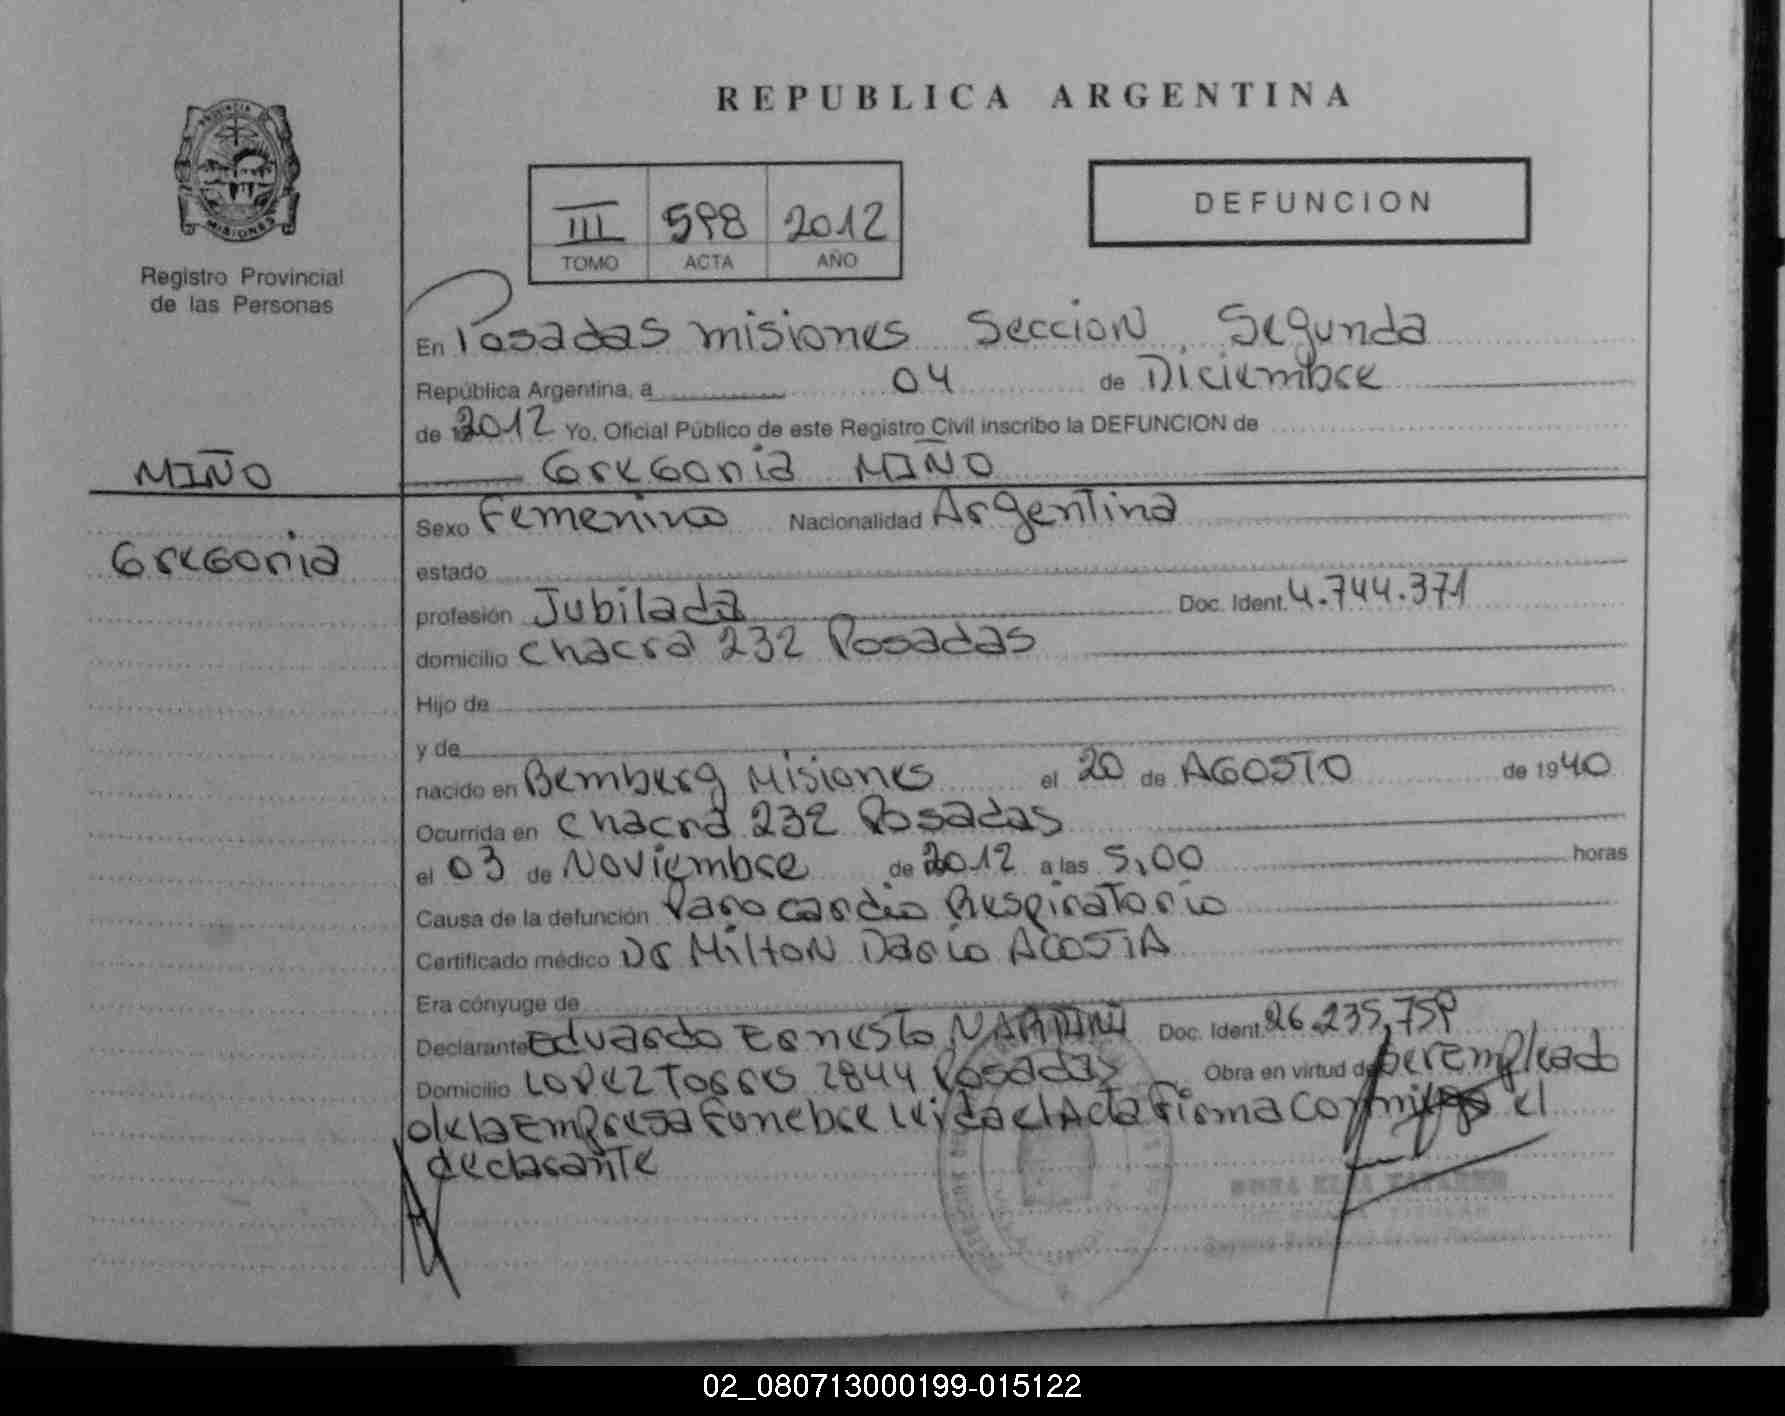 REPUBLICA ARGENTINA
PROVINCIA
MISIONES
Registro Provincial
de las Personas
III 598 2012
TOMO ACTA AÑO
DEFUNCION
En Posadas misiones Seccion Segunda
República Argentina, a 04 de Diciembre
de 2012 Yo, Oficial Público de este Registro Civil inscribo la DEFUNCION de
MIÑO
Gregoria MIÑO
Gregoria
Sexo Femenino Nacionalidad Argentina
estado
profesión Jubilada Doc. Ident. 4.744.371
domicilio chacra 232 Posadas
Hijo de
y de
nacido en Bemberg Misiones el 20 de AGOSTO de 1940
Ocurrida en chacra 232 Posadas
el 03 de Noviembre de 2012 a las 5,00 horas
Causa de la defunción Paro cardio Respiratorio
Certificado médico Dr Milton Dario ACOSTA
Era cónyuge de
Declarante Eduardo Ernesto Doc. Ident. 26.235,759
Domicilio LOPEZ Torres 2844 Posadas Obra en virtud de ser empleado
de la Empresa Funebre leida el Acta Firma conmigo el
declarante
02_080713000199-015122